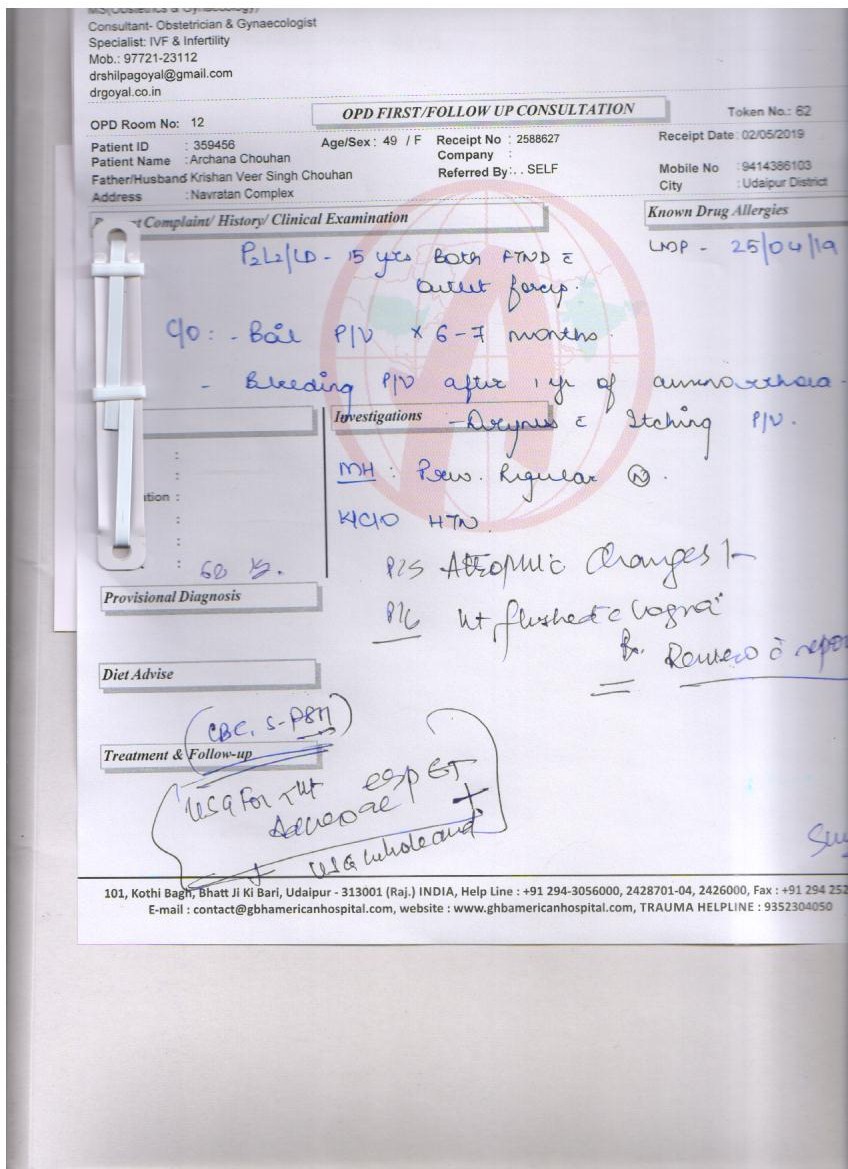 MS(Obstetrics & Gynaecology)
Consultant- Obstetrician & Gynaecologist
Specialist: IVF & Infertility
Mob.: 97721-23112
drshilpagoyal@gmail.com
drgoyal.co.in
OPD Room No: 12
OPD FIRST/FOLLOW UP CONSULTATION
Token No.: 62
Patient ID : 359456 Age/Sex : 49 / F Receipt No : 2588627 Receipt Date : 02/05/2019
Patient Name : Archana Chouhan Company :
Father/Husband Krishan Veer Singh Chouhan Referred By: . . SELF Mobile No : 9414386103
Address : Navratan Complex City : Udaipur District
t Complaint/ History/ Clinical Examination
Known Drug Allergies
P2L2/LD - 15 yrs Both FTND c̄
LMP - 25/04/19
outlet forcep.
C/O : - Boil P/V × 6-7 months.
- Bleeding P/V after 1 yr of
Investigations
- Dryness c̄ Itching P/V.
MH : Prev. Regular (N).
K/C/O HTN
ation :
: 60
P/S Atrophic Changes
Provisional Diagnosis
Diet Advise
CBC, S-
Treatment & Follow-up
USG For
USG whole
101, Kothi Bagh, Bhatt Ji Ki Bari, Udaipur - 313001 (Raj.) INDIA, Help Line : +91 294-3056000, 2428701-04, 2426000, Fax : +91 294 252
E-mail : contact@gbhamericanhospital.com, website : www.ghbamericanhospital.com, TRAUMA HELPLINE : 9352304050